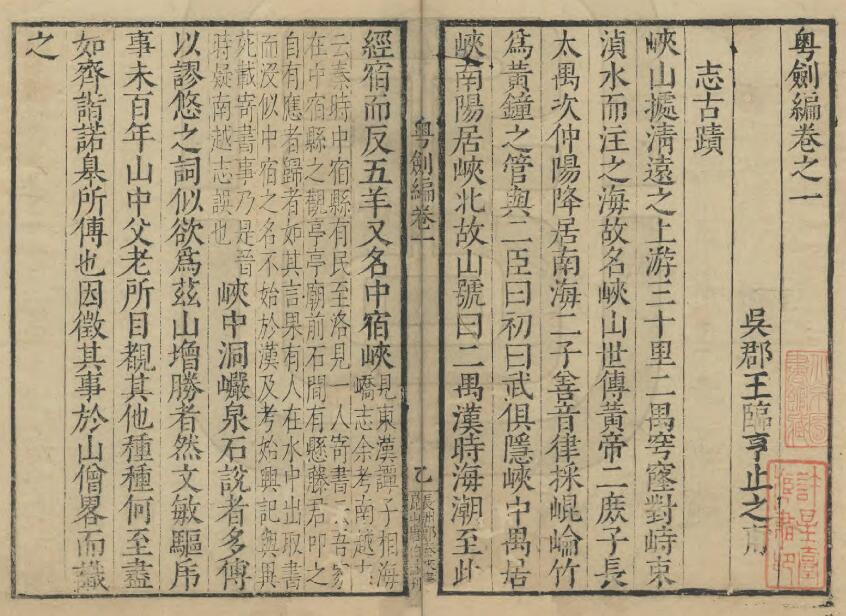 粵劍編卷之一
吳郡王臨亨止之甫
志古蹟
峽山據清遠之上游三十里二禺穹窿對峙束
湞水而注之海故名峽山世傳黃帝二庶子長
太禺次仲陽降居南海二子善音律採崐崘竹
爲黃鐘之管與二臣曰初曰武俱隱峽中禺居
峽南陽居峽北故山號曰二禺漢時海潮至此
粵劍編卷一
乙
經宿而反五羊又名中宿峽見東漢譚子相海
嶠志余考南越志
云秦時中宿縣有民至洛見一人寄書云吾家
在中宿縣之觀亭亭廟前石間有懸藤君叩之
自有應者歸者如其言果有人在水中出取書
而沒似中宿之名不始於漢及考始興記與異
苑載寄書事乃是晉
時疑南越志誤也
峽中洞巖泉石說者多傳
以謬悠之詞似欲爲茲山增勝者然文敏驅虎
事未百年山中父老所目覩其他種種何至盡
如齊諧諾皋所傳也因徵其事於山僧畧而識
之